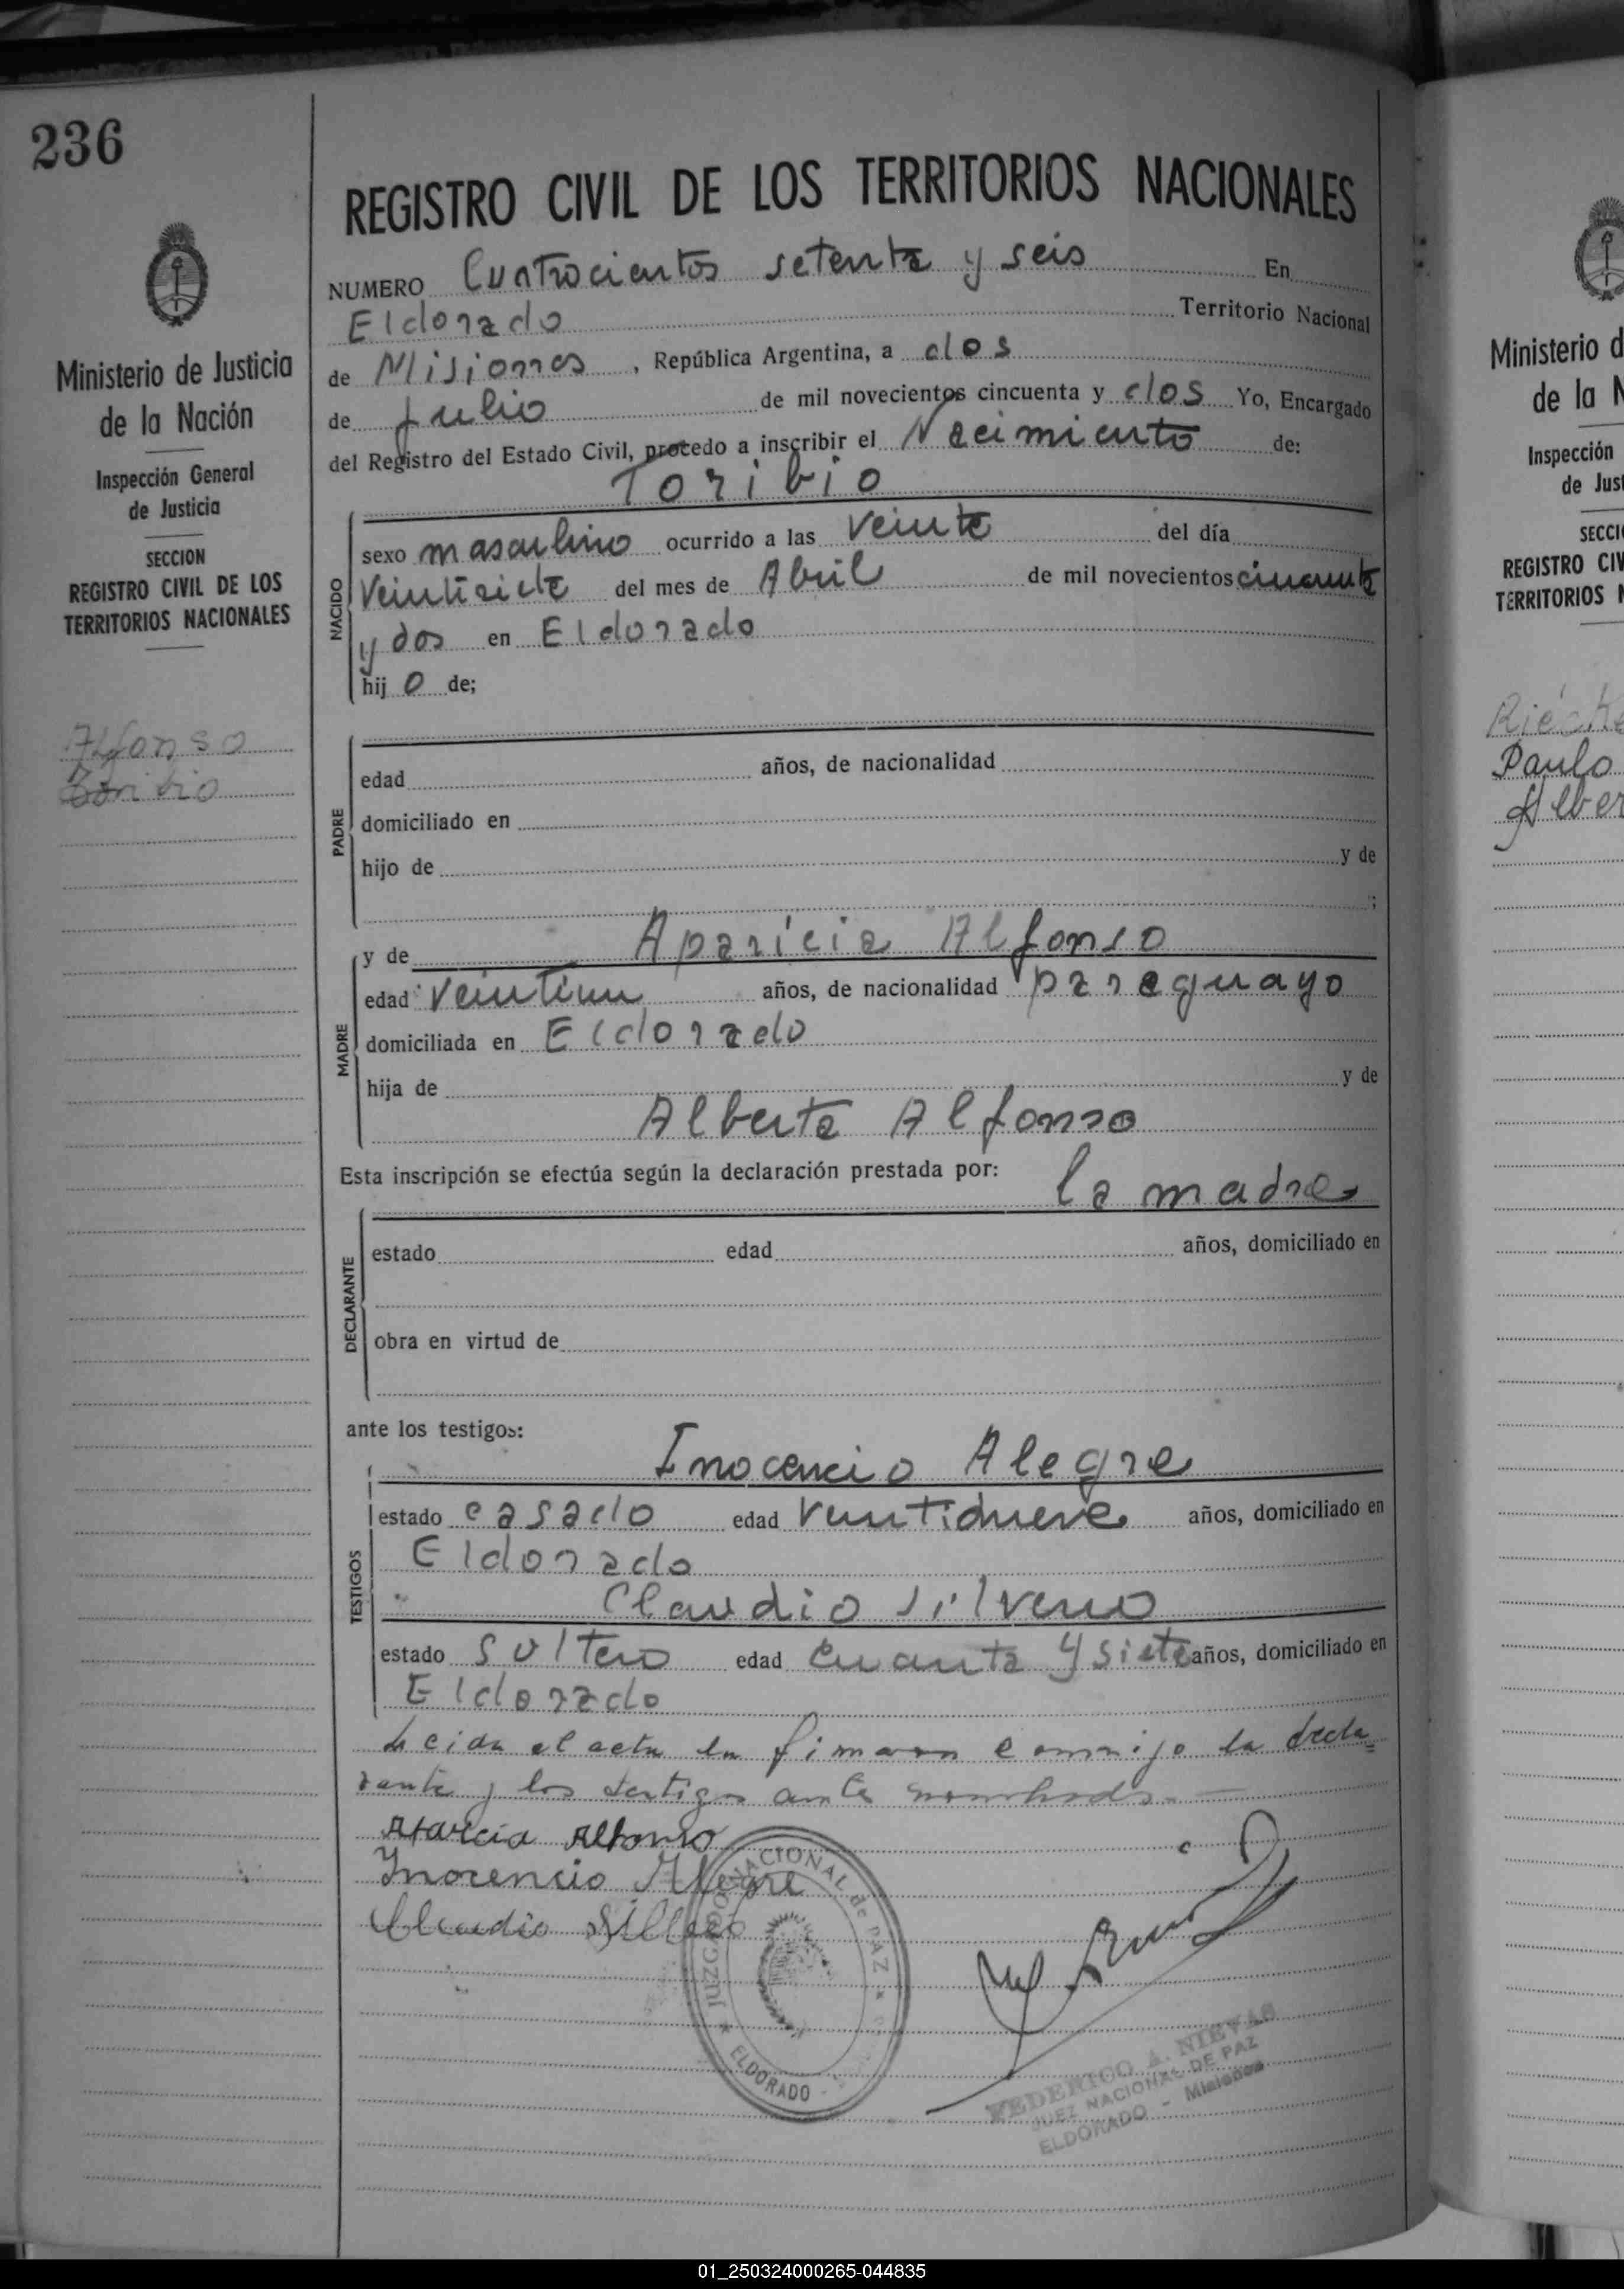 236
Ministerio de Justicia
de la Nación
Inspección General
de Justicia
SECCION
REGISTRO CIVIL DE LOS
TERRITORIOS NACIONALES
Alfonso
Toribio
REGISTRO CIVIL DE LOS TERRITORIOS NACIONALES
NUMERO Cuatrocientos setenta y seis En
Eldorado Territorio Nacional
de Misiones, República Argentina, a dos
de Julio de mil novecientos cincuenta y dos Yo, Encargado
del Registro del Estado Civil, procedo a inscribir el Nacimiento de:
Toribio
NACIDO
sexo masculino ocurrido a las veinte del día
veintisiete del mes de Abril de mil novecientos cincuenta
y dos en Eldorado
hijo de;
PADRE
edad años, de nacionalidad
domiciliado en
hijo de y de
;
MADRE
y de Aparicia Alfonso
edad veintiun años, de nacionalidad paraguayo
domiciliada en Eldorado
hija de y de
Alberta Alfonso
Esta inscripción se efectúa según la declaración prestada por: la madre
DECLARANTE
estado edad años, domiciliado en
obra en virtud de
ante los testigos:
TESTIGOS
Inocencio Alegre
estado casado edad veintinueve años, domiciliado en
Eldorado
Claudio Silvero
estado soltero edad cuarenta y siete años, domiciliado en
Eldorado
Leida el acta la firman conmigo la decla=
rante y los testigos ante nombrados.-
Alfonso
Inocencio Alegre
Claudio Silvero
JUZGADO NACIONAL de PAZ
ELDORADO
FEDERICO A. NIEVAS
JUEZ NACIONAL DE PAZ
ELDORADO - Misiones
Ministerio d
de la N
Inspección
de Just
SECCI
REGISTRO CIV
TERRITORIOS N
Paulo
Alber
01_250324000265-044835